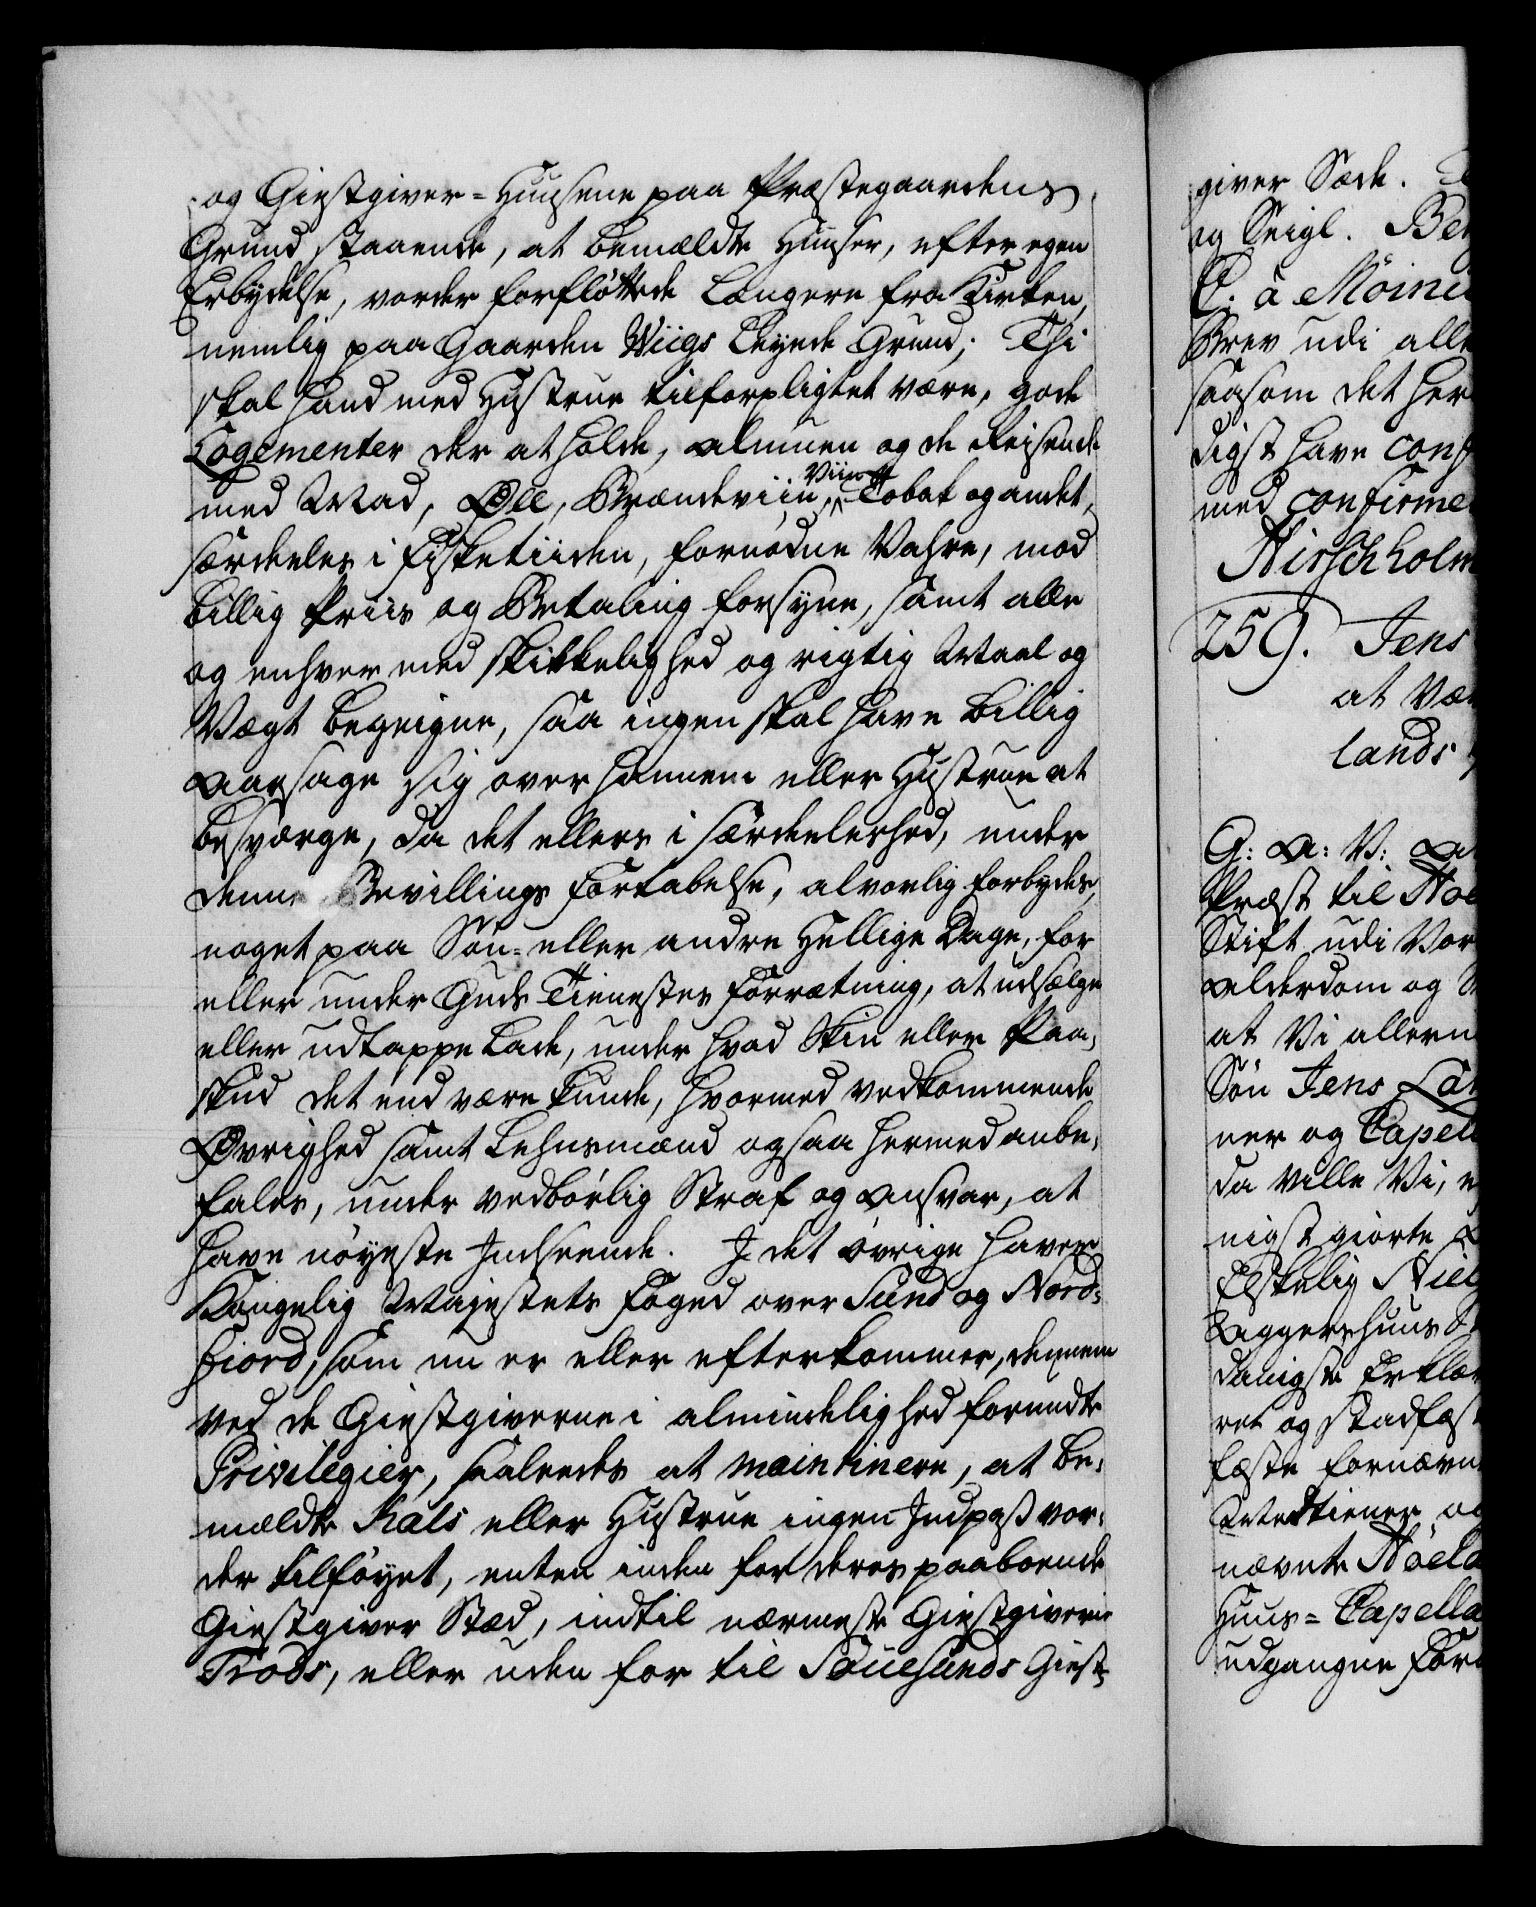 og Giestgiver-Huusene paa Præstegaardens
Grund staaende, at bemældte Huuser, efter egen
Erbydelse, vorder forfløttede længere fra Kirken,
nemlig paa Gaarden Wiigs Leyede Grund; Thi
skal hand med Hustrue tilforpligtet være, gode
Logementer der at holde, almuen og de Reisende
med Mad, Øll, Brændeviin, Viin Tobak og andet,
særdeeles i Fisketiiden, fornødne Vahre, mod
billig Priis og Betaling forsyne, samt alle
og enhver med skikkelighed og rigtig Maal og
Vægt begeigne, saa ingen skal have billig
Aarsage sig over hannem eller Hustrue at
besværge, da det ellers i særdeeleshed, under
denne Bevillings fortabelse, alvorlig forbydes,
noget paa Søn- eller andre Hellige Dage, for
eller under Guds Tienestes Forrætning, at udsælge
eller udtappe lade, under hvad Skin eller Paa-
skud det end være kunde, hvormed vedkommende
Øvrighed samt Lehnsmænd ogsaa hermed anbe-
fales, under vedbørlig Straf og Ansvar, at
have nøyeste Indseende. I det øvrige haver
Kongelig Majestets Foged over Sund og Nord-
fiord, som nu er eller efterkommer, dennem
ved de Giestgiverne i almindelighed forundte
Privilegier, saaledes at maintinere, at be-
mældte Kals eller Hustrue ingen Indpas vor-
der tilføyet, enten inden for deres paaboende
Giestgiver Stæd, indtil nærmeste Giestgiverie
Trods, eller uden for til Souesunds Giest-
giver Sæde.
og Seigl. Ber
C. a Möine
Brev udi alle
saasom det her
digst have conf
med confirme
Hirschholm
259. Jens
at vær
lands
G: A: V: A
Præst til Noe
Stift udi Vor
Alderdom og
at Vi allern
Søn Jens Lar
ner og Capell
da ville Vi, e
nigst giorte
Elskelig Niel
Aggershuus
danigste Erklæ
ret og Stadfæst
fæste fornævn
Medtiener og
nævnte Höela
Huus-Capella
udgangne For